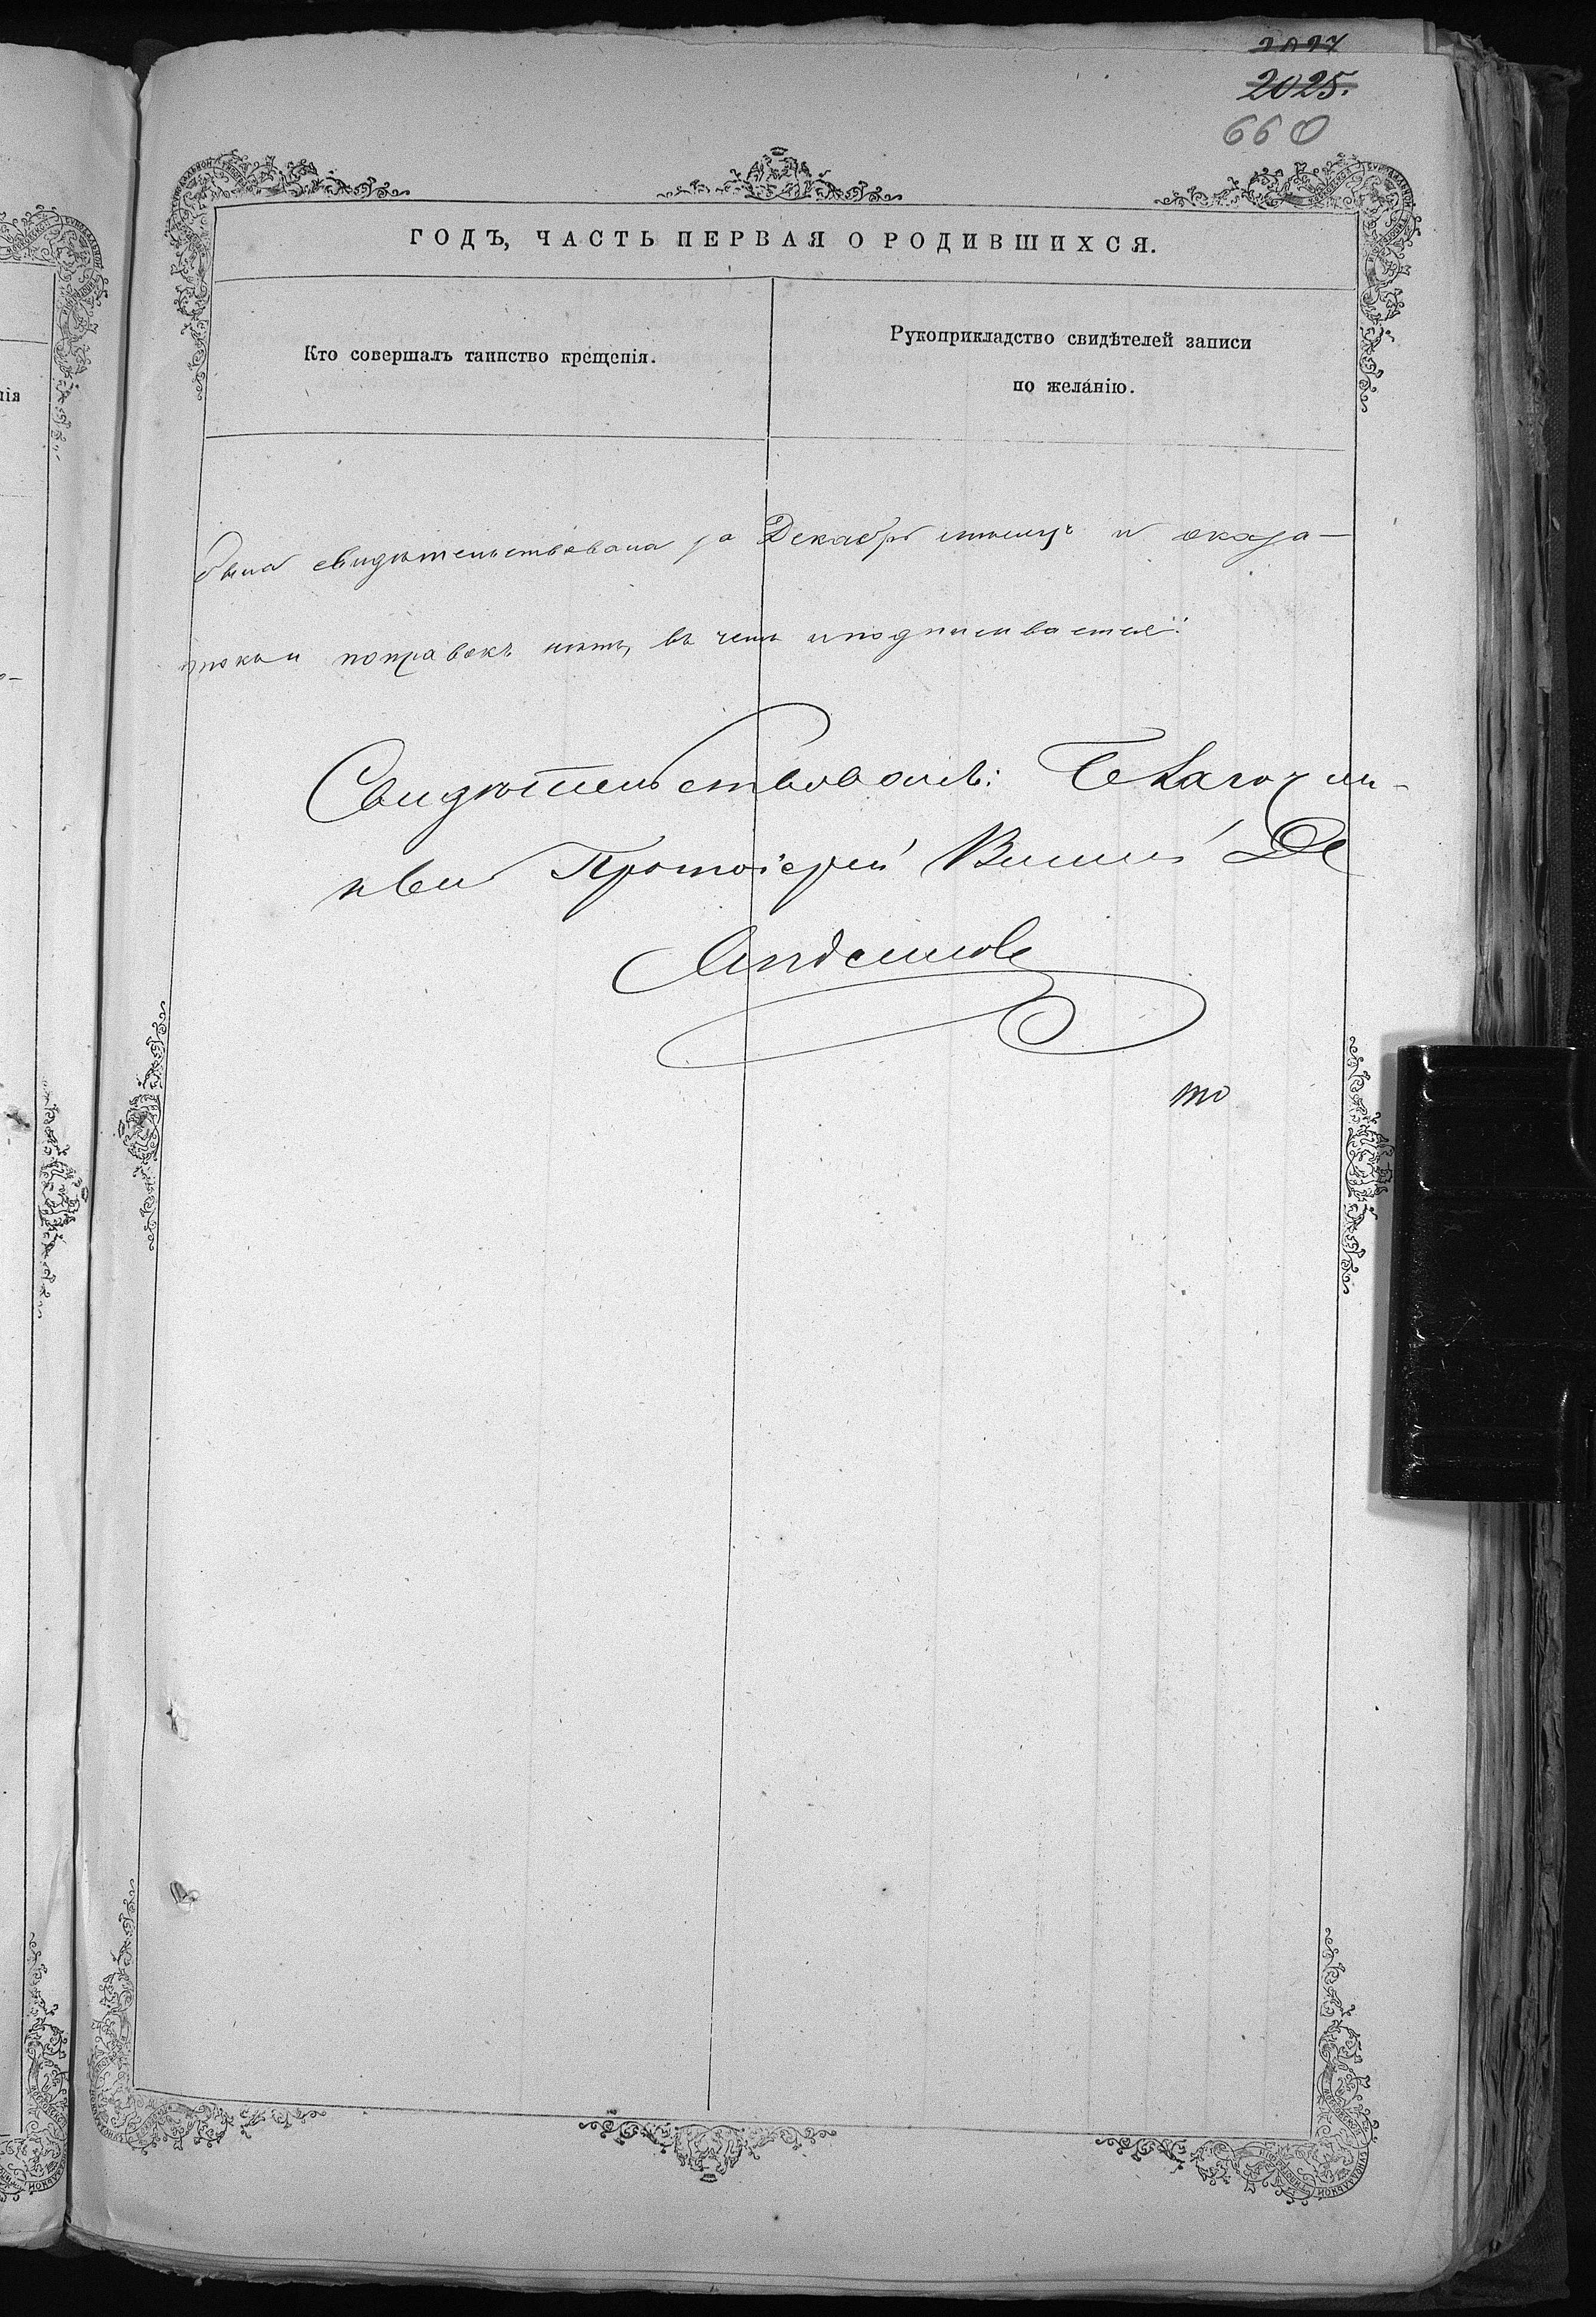 2027
2025.
660
ГОДЪ, ЧАСТЬ ПЕРВАЯ О РОДИВШИХСЯ.
Кто совершалъ таинство крещенія.
Рукоприкладство свидѣтелей записи
по желáнію.
была свидѣтельствована за Декабрь мѣсяцъ и оказа-
поправокъ нѣтъ, въ чемъ и подписываемся:
Свидѣтельствовалъ: Благочин-
ный Протоіерей
то